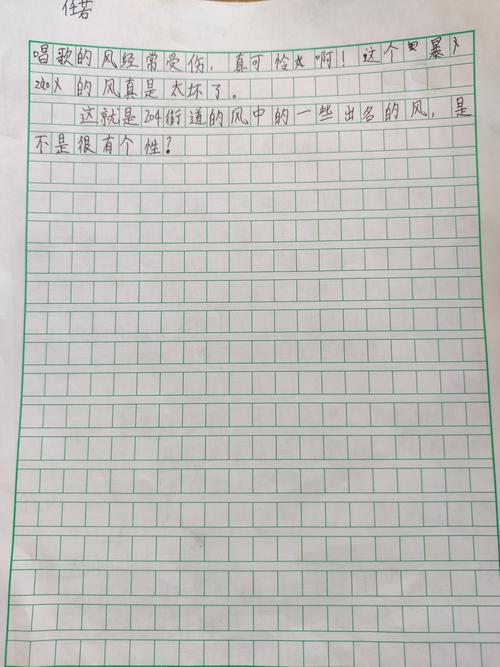 任若
唱歌的风经常受伤,真可怜啊!这个暴
的风真是太坏了。
这就是204街道的风中的一些出名的风,是
不是很有个性?